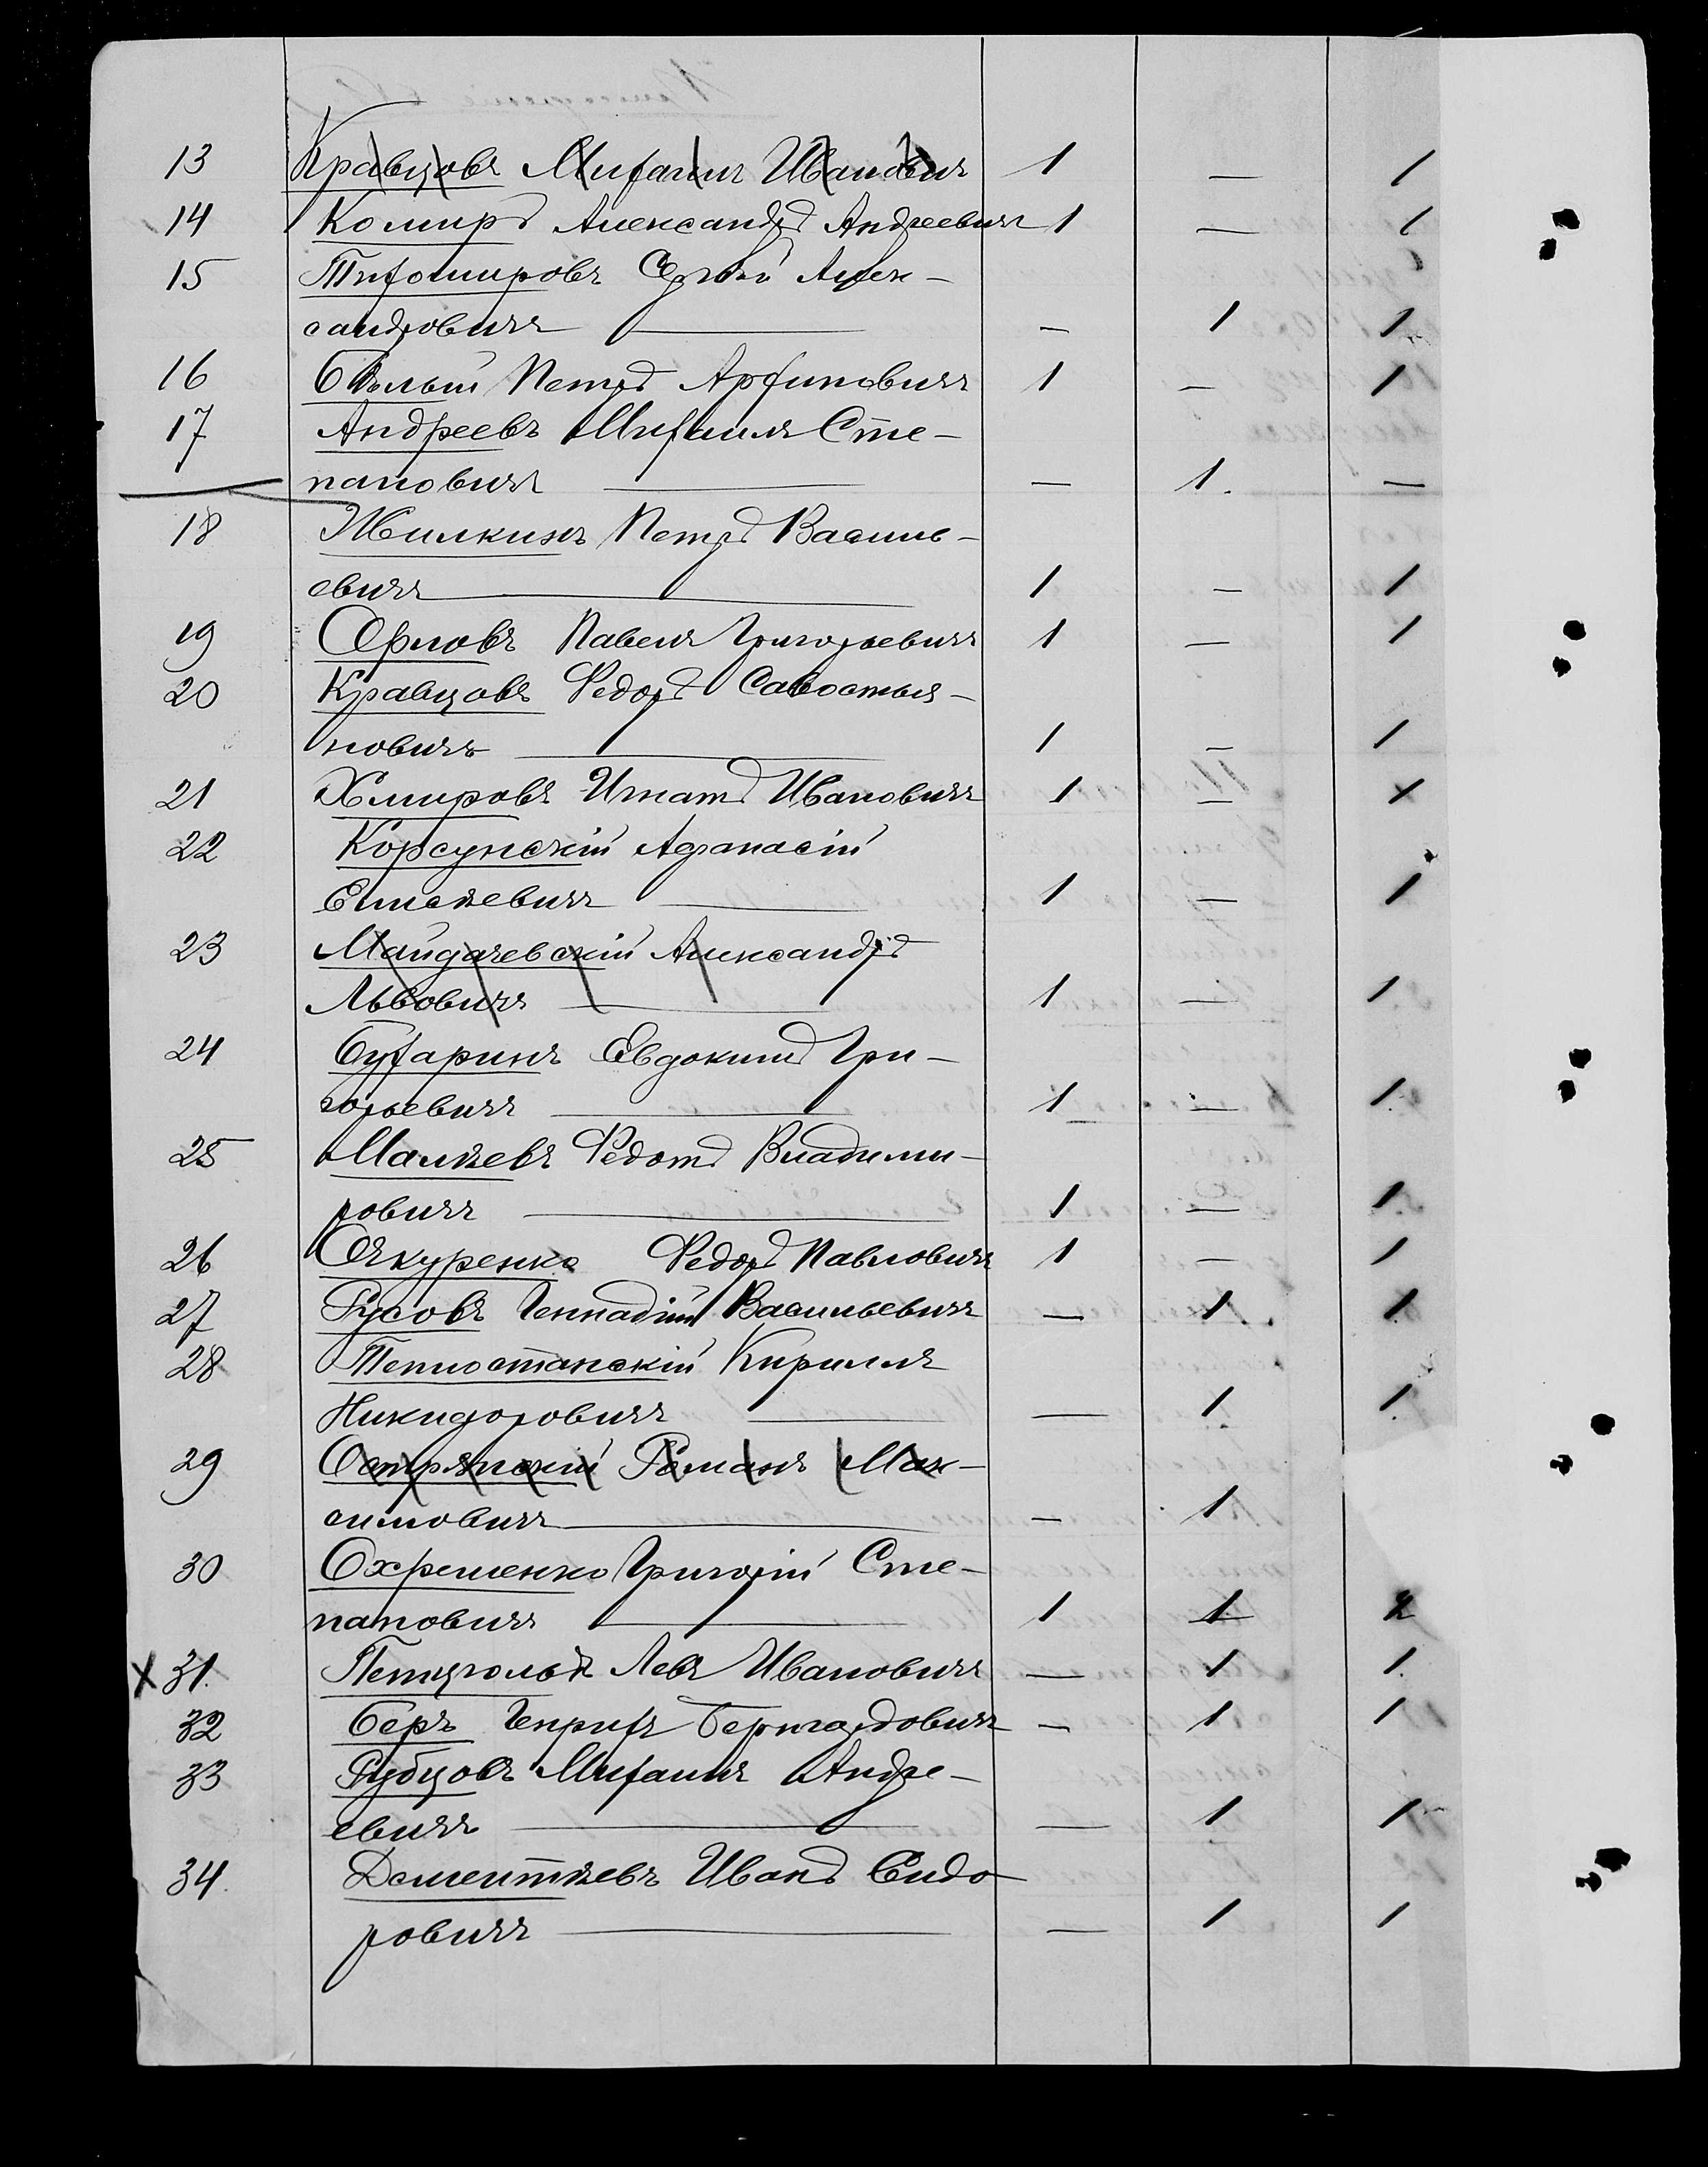 13 Кравцовъ Михаилъ Ивановичъ 1 — 1
14 Комиръ Александръ Андреевичъ 1 — 1
15 Тихомировъ Сергѣй Алек-
сандровичъ — — 1 1
16 Бѣлый Петръ Архиповичъ 1 — 1
17 Андреевъ Михаилъ Сте-
пановичъ — — 1. —
18 Жилкинъ Петръ Василь-
евичъ — 1 — 1
19 Орловъ Павелъ Григорьевичъ 1 — 1
20 Кравцовъ Федоръ Савостья-
новичъ — 1 — 1
21 Хмировъ Игнатъ Ивановичъ 1 — 1
22 Корсунскій Афанасій
Елисѣевичъ — 1 — 1
23 Майдачевскій Александръ
Львовичъ — 1 — 1
24 Бухаринъ Евдокимъ Гри-
горьевичъ — 1 — 1
25 Малѣевъ Федотъ Владими-
ровичъ — 1 — 1
26 Очкуренко Федоръ Павловичъ 1 — 1
27 Русовъ Геннадій Васильевичъ — 1 1
28 Теплостанскій Кириллъ
Никифоровичъ — — 1 1
29 Острянскій Романъ Мак-
симовичъ — — 1
30 Охременко Григорій Сте-
пановичъ — 1 1 2
31. Петцгольдъ Левъ Ивановичъ — 1 1
32 Беръ Генрихъ Бернгардовичъ — 1 1
33 Рубцовъ Михаилъ Андре-
евичъ — — 1 1
34. Дементѣевъ Иванъ Сидо
ровичъ — — 1 1